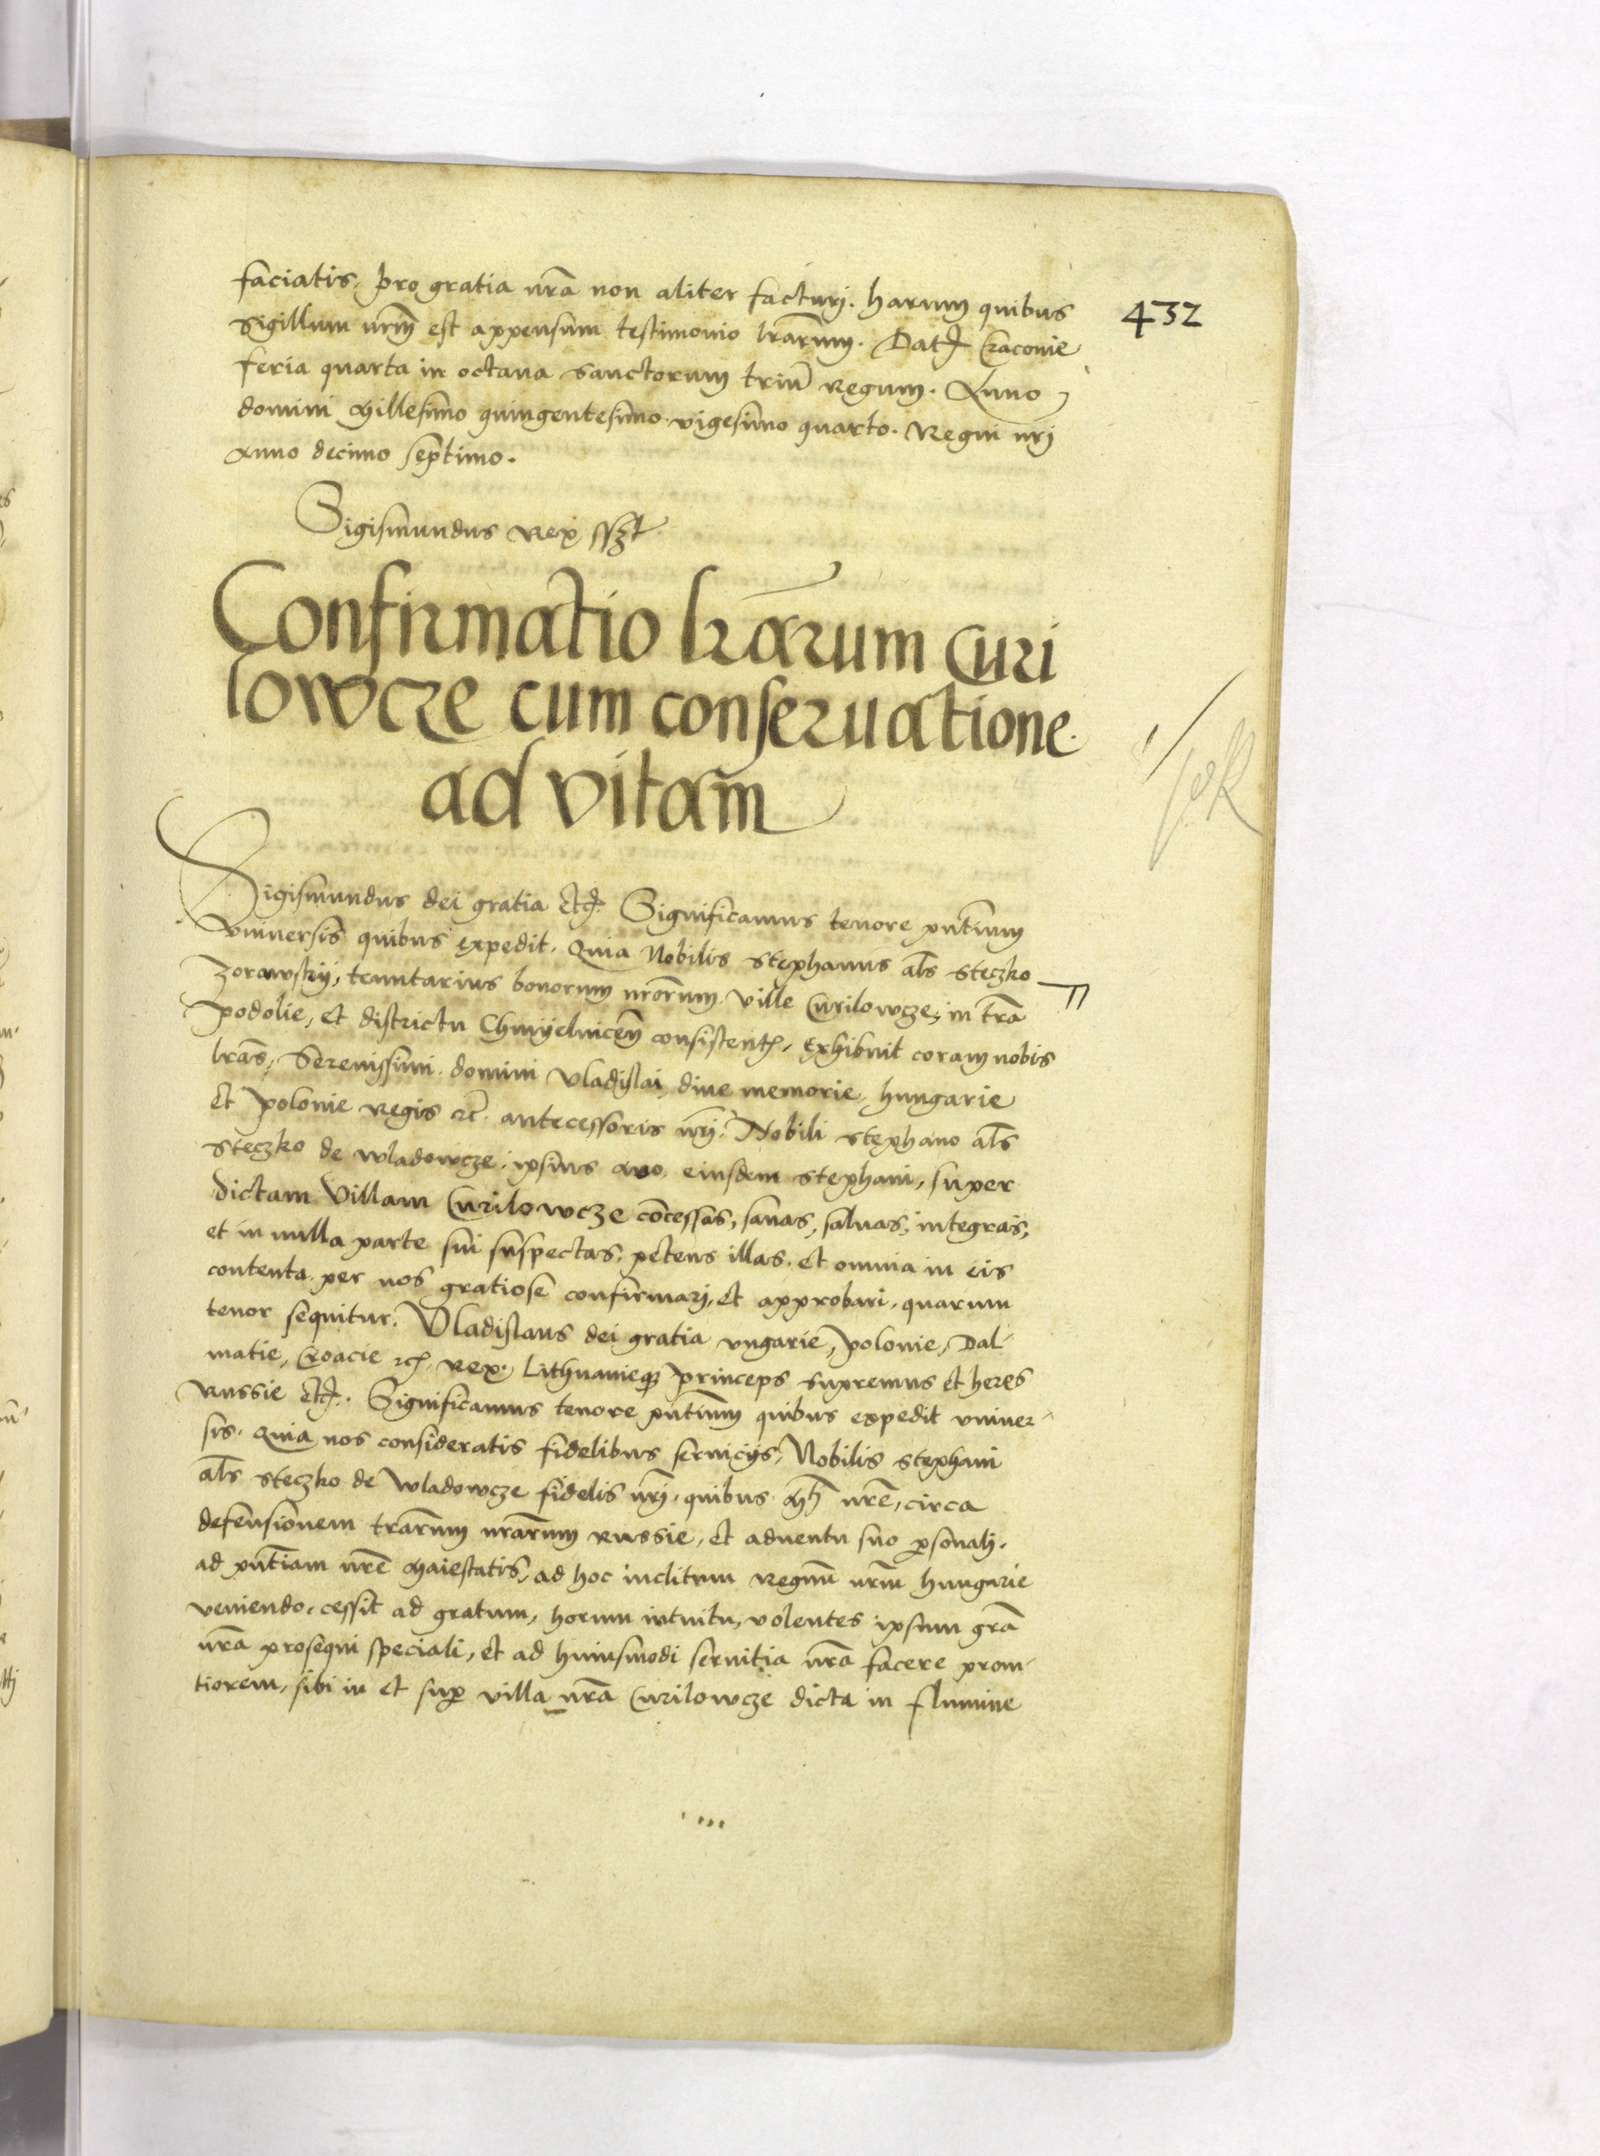 faciatis, pro gratia nra non aliter facturi. harum quibus
sigillum nrm est appensum testimonio lrarum. Dat Cracouie
feria quarta in octaua sanctorum triu Regum. Anno
domini Millesimo quingentesimo vigesimo quarto. Regni nri
Anno decimo septimo.
432
Sigismundus Rex sszt
Confirmatio lrarum Curi
lowcze cum conseruatione
ad vitam
Sigismundus dei gratia etc. Significamus tenore pntium
Vniuersis quibus expedit. Quia Nobilis Stephanus als Steczko
Zorawskij, tenutarius bonorum nrorum ville Curilowcze, in tra
podolie, et districtu Chmyelnicen consisten, Exhibuit coram nobis
lras, Serenissimi domini Vladislai diue memorie, hungarie
et polonie Regis etc. antecessoris nri, Nobili Stephano als
Steczko de wladowcze, ipsius auo eiusdem Stephani, super
dictam Villam Curilowcze concessas, sanas, saluas, integras,
et in nulla parte sui suspectas, petens illas, et omnia in eis
contenta per nos gratiose confirmari, et approbari, quarum
tenor sequitur. Vladislaus dei gratia vngarie, polonie, Dal-
matie, Croacie etc. Rex. Lithuanieq princeps supremus et heres
Russie etc. Significamus tenore pntium quibus expedit vniuer-
sis. Quia nos consideratis fidelibus seruicijs, Nobilis Stephani
als Steczko de Wladowcze fidelis nri, quibus Mti nre, circa
defensionem trarum nrarum Russie, et aduentu suo psonali,
ad pntiam nre Maiestatis, ad hoc inclitum Regnu nrm hungarie
veniendo, cessit ad gratum, horum intuitu, volentes ipsum gra
nra prosequi speciali, et ad huiusmodi seruitia nra facere prom-
tiorem, sibi in et sup villa nra Curilowcze dicta in flumine